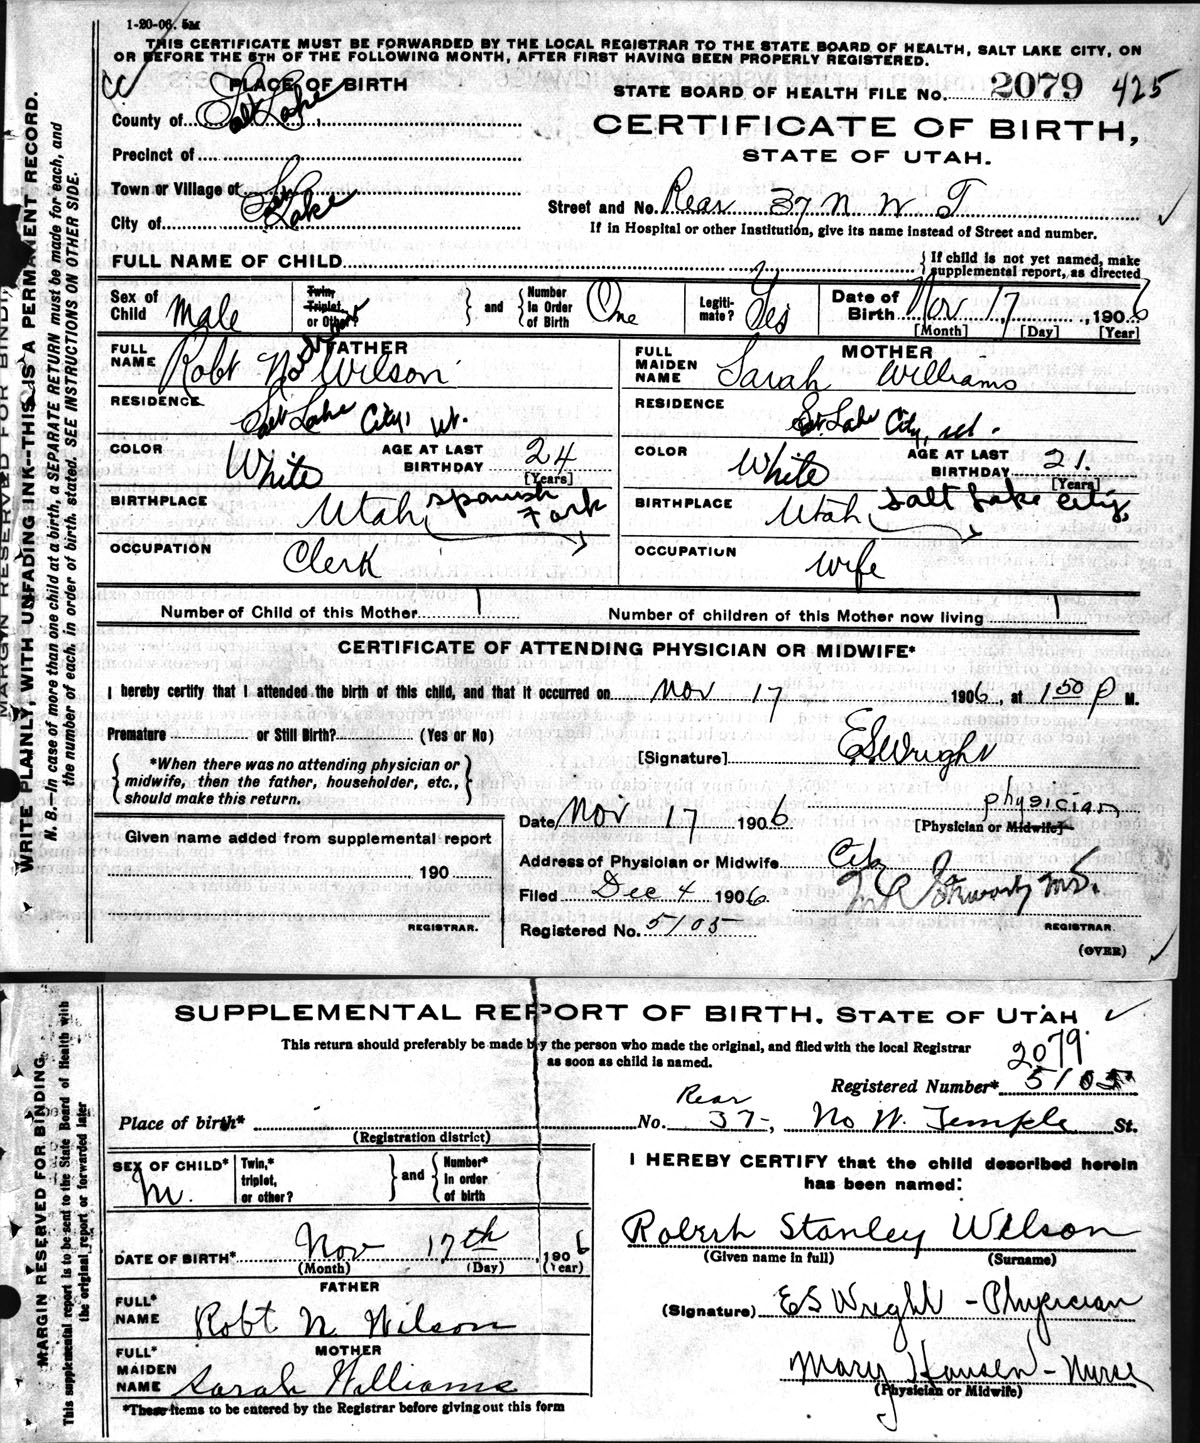 1-20-06. 5M
THIS CERTIFICATE MUST BE FORWARDED BY THE LOCAL REGISTRAR TO THE STATE BOARD OF HEALTH, SALT LAKE CITY, ON
OR BEFORE THE 5TH OF THE FOLLOWING MONTH, AFTER FIRST HAVING BEEN PROPERLY REGISTERED.
PLACE OF BIRTH
STATE BOARD OF HEALTH FILE No. 2079 425
County of Salt Lake
CERTIFICATE OF BIRTH,
Precinct of
STATE OF UTAH.
Town or Village of
City of Salt Lake
Street and No. Rear 37 N W T
If in Hospital or other Institution, give its name instead of Street and number.
FULL NAME OF CHILD
If child is not yet named, make supplemental report, as directed
Sex of Child Male
Twin, Triplet, or Other?
and
Number In Order of Birth One
Legiti-mate? Yes
Date of Birth Nov 17, 1906
[Month] [Day] [Year]
FATHER
FULL NAME Robt N Wilson
RESIDENCE Salt Lake City, Ut.
COLOR White
AGE AT LAST BIRTHDAY 24
[Years]
BIRTHPLACE Utah, Spanish Fork
OCCUPATION Clerk
MOTHER
FULL MAIDEN NAME Sarah Williams
RESIDENCE St. Lake City,
COLOR White
AGE AT LAST BIRTHDAY 21.
[Years]
BIRTHPLACE Utah Salt Lake City,
OCCUPATION Wife
Number of Child of this Mother 1
Number of children of this Mother now living 1
CERTIFICATE OF ATTENDING PHYSICIAN OR MIDWIFE*
I hereby certify that I attended the birth of this child, and that it occurred on Nov 17 1906, at 1 50 P M.
Premature or Still Birth? (Yes or No)
*When there was no attending physician or
midwife, then the father, householder, etc.,
should make this return.
[Signature] E S Wright
physician
[Physician or Midwife]
Date Nov 17 1906
Given name added from supplemental report
190
REGISTRAR.
Address of Physician or Midwife City
Filed Dec 4 1906
Registered No. 5105
REGISTRAR.
(OVER)
MARGIN RESERVED FOR BINDING
WRITE PLAINLY, WITH UNFADING INK--THIS IS A PERMANENT RECORD.
N. B.--In case of more than one child at a birth, a SEPARATE RETURN must be made for each, and
the number of each, in order of birth, stated. SEE INSTRUCTIONS ON OTHER SIDE.
SUPPLEMENTAL REPORT OF BIRTH. STATE OF UTAH
This return should preferably be made by the person who made the original, and filed with the local Registrar
as soon as child is named.
2079
Registered Number* 5105
Place of birth*
(Registration district)
No. Rear 37, No W. Temple St.
SEX OF CHILD* M.
Twin,* triplet, or other?
and
Number* in order of birth
I HEREBY CERTIFY that the child described herein
has been named:
Robert Stanley Wilson
(Given name in full) (Surname)
DATE OF BIRTH* Nov 17th, 1906
(Month) (Day) (Year)
FATHER
FULL* NAME Robt N. Wilson
(Signature) E S Wright - Physician
MOTHER
FULL* MAIDEN NAME Sarah Williams
Mary Hansen - Nurse
(Physician or Midwife)
*These items to be entered by the Registrar before giving out this form
MARGIN RESERVED FOR BINDING.
This supplemental report is to be sent to the State Board of Health with
the original report or forwarded later